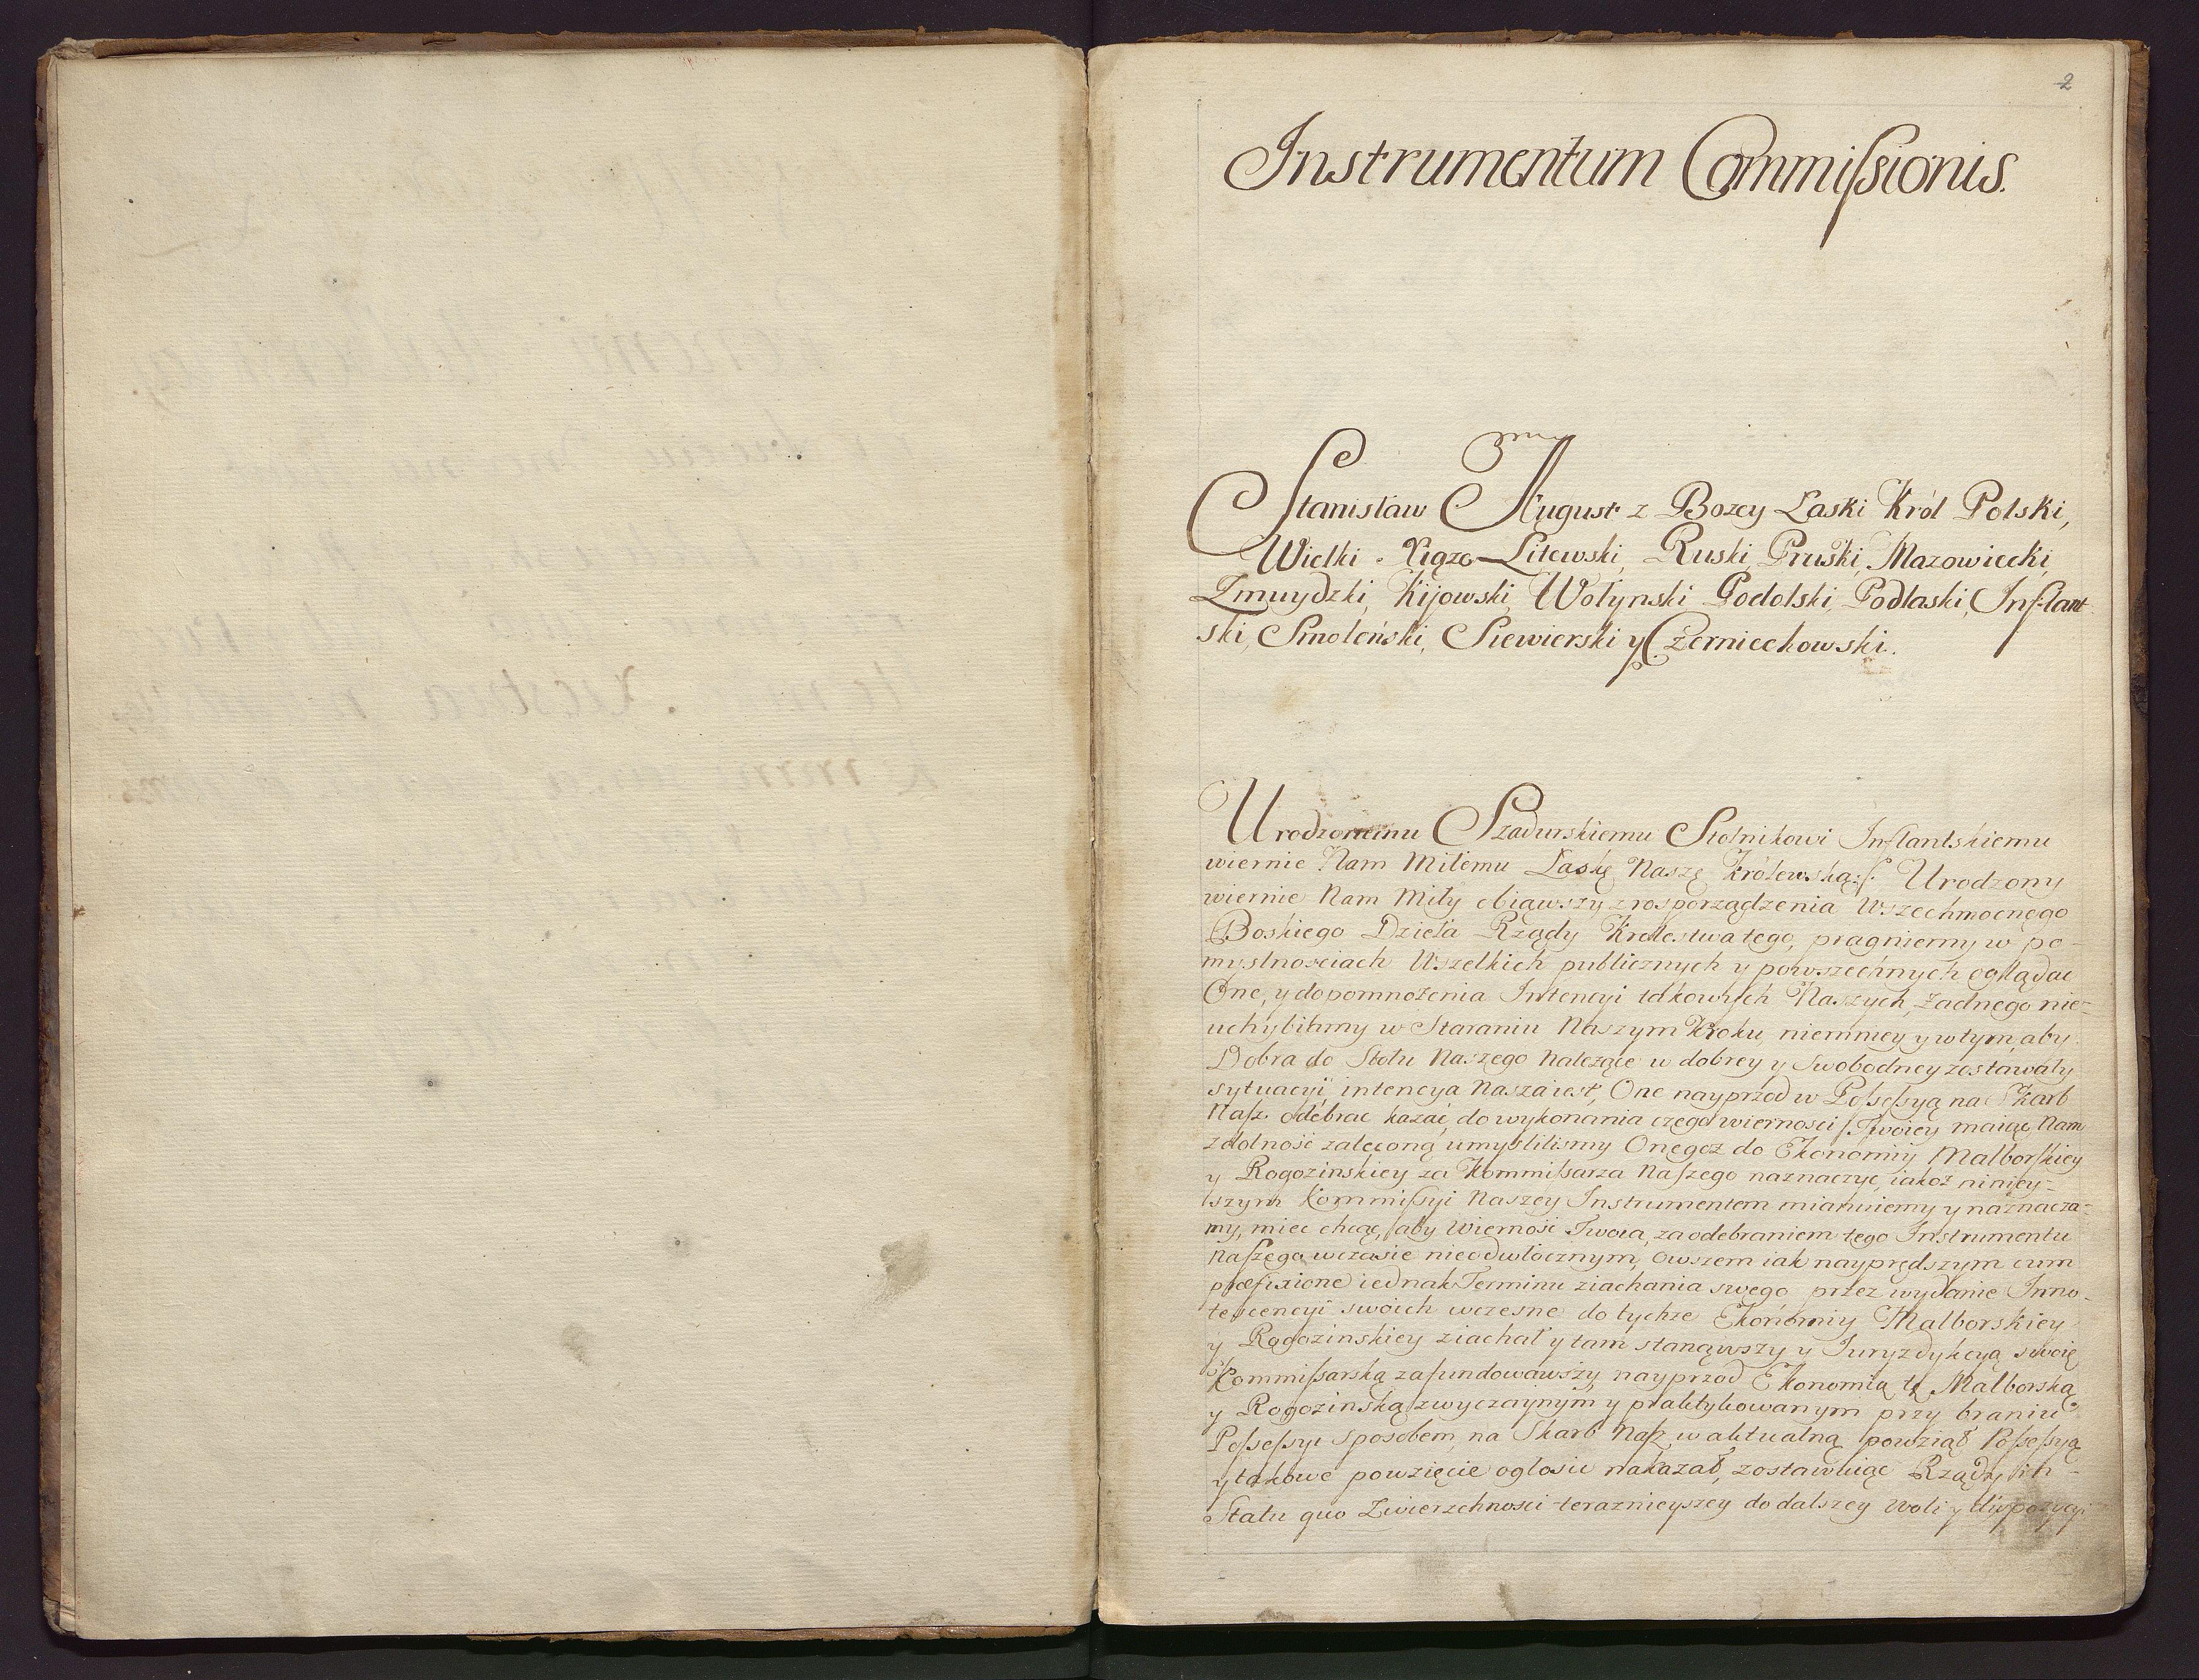 2
Instrumentum Commiſsionis.
Stanisław August z Bozey Łaski Król Polski,
Wielki Xiąże Litewski, Ruski, Pruski, Mazowiecki,
Zmuydzki, Kijowski, Wołynski Podolski, Podlaski, Inflant
ski, Smoleński, Siewierski y Czerniechowski.
Urodzonemu Szadurskiemu Stolnikowi Inflantskiemu
wiernie Nam Miłemu Łaskę Naszę Królewską:/: Urodzony
wiernie Nam Miły obiąwszy z rosporządzenia Wszechmocnego
Boskiego Dzieła Rządy Krolestwa tego, pragniemy w po-
myslnościach Wszelkich publicznych y powszechnych oglądac
One, y do pomnożenia Intencyi takowych Naszych, żadnego nie-
uchybiamy w Staraniu Naszym Kroku, niemniey y w tym, aby
Dobra do Stołu Naszego Nalezące w dobrey y Swobodney zostawały
sytuacyi, intencya Nasza iest, One nayprzod w Poſseſsyą na Skarb
Naſz odebrac kazać, do wykonania czego wiernosci Twoiey maiąc Nam
zdolność zaleconą umyslilismy Onegoż do Ekonomiy Malborſkiey
y Rogozinskiey za Kommiſsarza Naſzego naznaczyc, iakoż niniey-
szym Kommiſsyi Naszey Instrumentem mianuiemy y naznacza-
my, miec chcąc, aby Wierność Twoia, za odebraniem tego Instrumentu
Naſzego w czasie nieodwłocznym, owszem iak nayprędszym cum
præfixione iednak Terminu ziachania swego przez wydanie Inno-
tescencyi swoich wczesne do tychże Ekonomiy Malborskiey
y Rogozinskiey ziachał y tam stanąwszy y Juryzdykcyą swoię
Kommiſsarską zafundowawszy nayprzod Ekonomią tę Malborską
y Rogozinską zwyczaynym y praktykowanym przy braniu
Poſseſsyi sposobem, na Skarb Naſz w aktualną powziął Poſseſsyą
y takowe powzięcie oglosic nakazał, zostawuiąc Rządy in
Statu quo Zwierzchnosci teraznieyszey do dalszey woli y dispozycyi